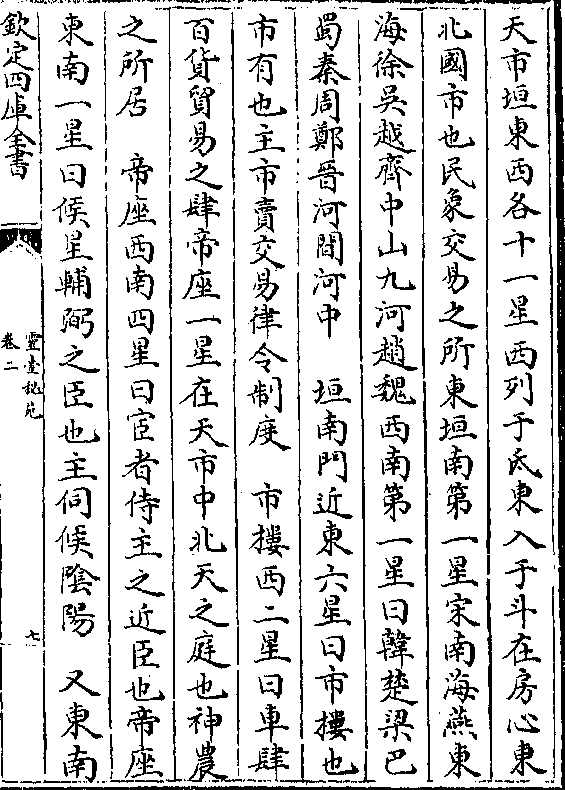 天市垣東西各十一星西列于氐東入于斗在房心東
北國市也民象交易之所東垣南第一星宋南海燕東
海徐吳越齊中山九河趙魏西南第一星曰韓楚梁巴
蜀秦周鄭晉河間河中　垣南門近東六星曰市樓也
市有也主市賣交易律令制度　市樓西二星曰車肆
百貨貿易之肆帝座一星在天市中北天之庭也神農
之所居　帝座西南四星曰宦者侍主之近臣也帝座
東南一星曰候星輔弼之臣也主伺候陰陽　又東南
欽定四庫全書
靈臺秘苑
卷二
七